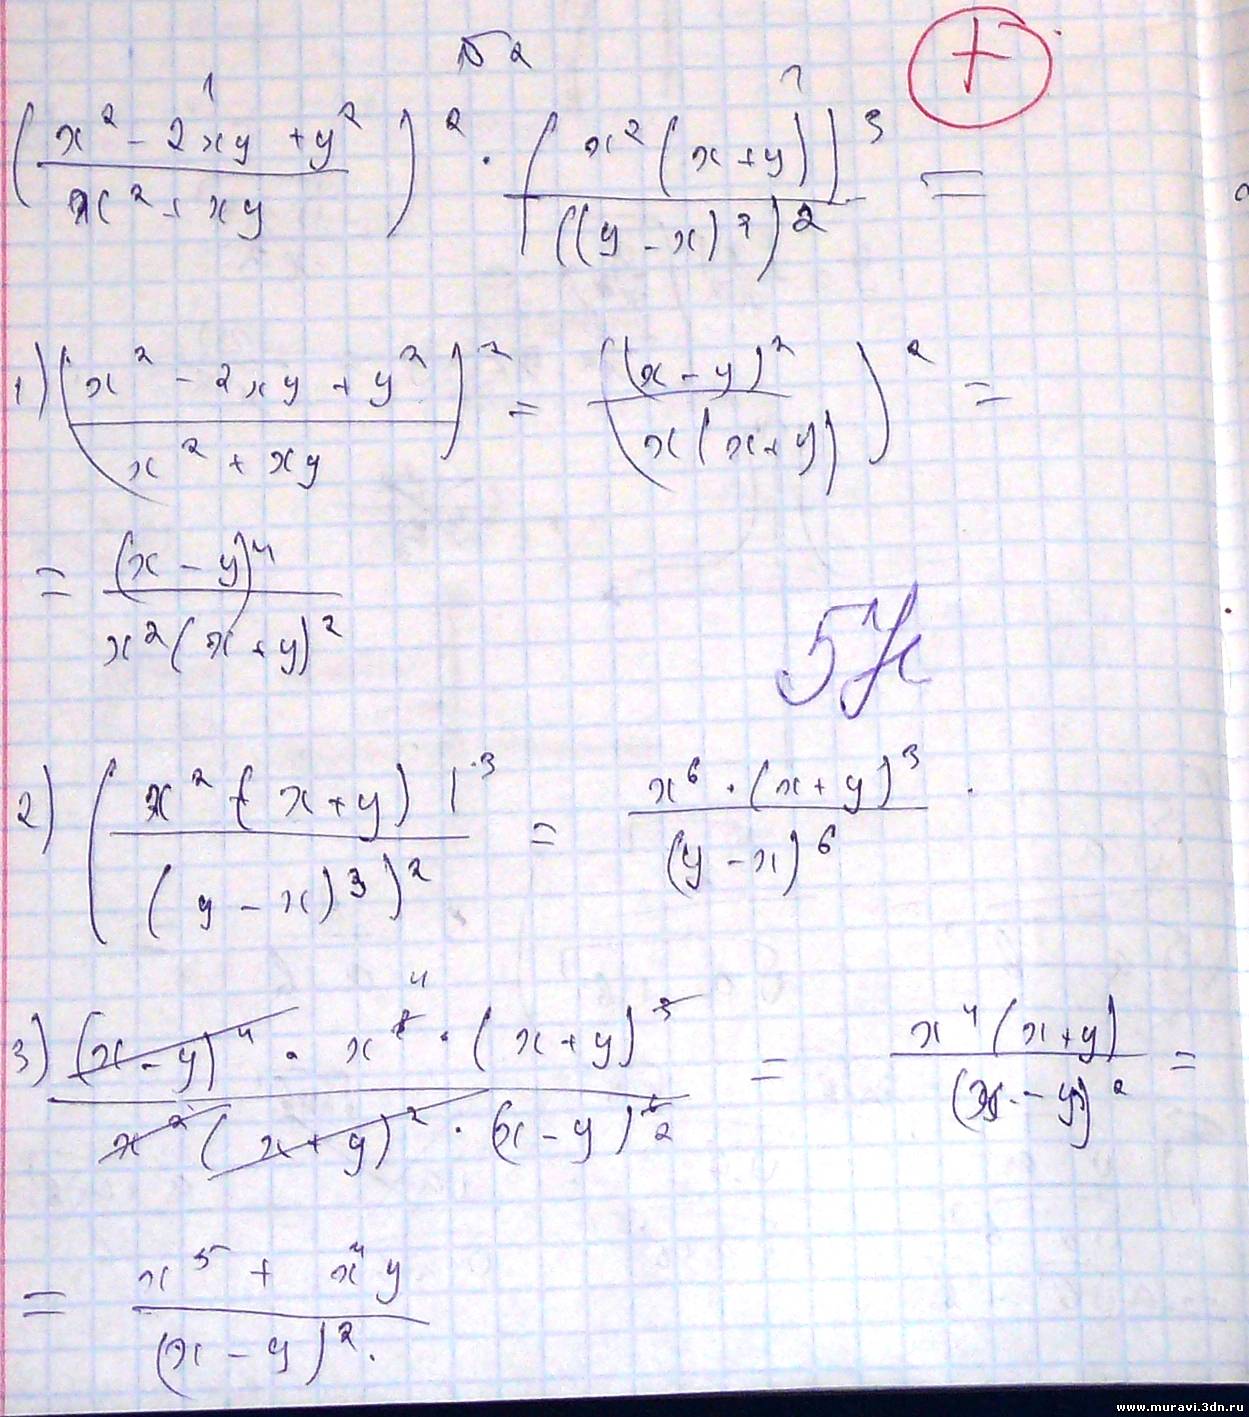 №2
(x² - 2xy + y² / x² + xy)² · (x²(x+y))³ / ((y-x)³)² =
1) (x² - 2xy + y² / x² + xy)² = ((x-y)² / x(x+y))² =
= (x-y)⁴ / x²(x+y)²
5
2) (x²(x+y))³ / ((y-x)³)² = x⁶ · (x+y)³ / (y-x)⁶
3) (x-y)⁴ · x⁶ · (x+y)³ / x²(x+y)² · (x-y)⁶ = x⁴(x+y) / (x-y)² =
= x⁵ + x⁴y / (x-y)².
www.muravi.3dn.ru